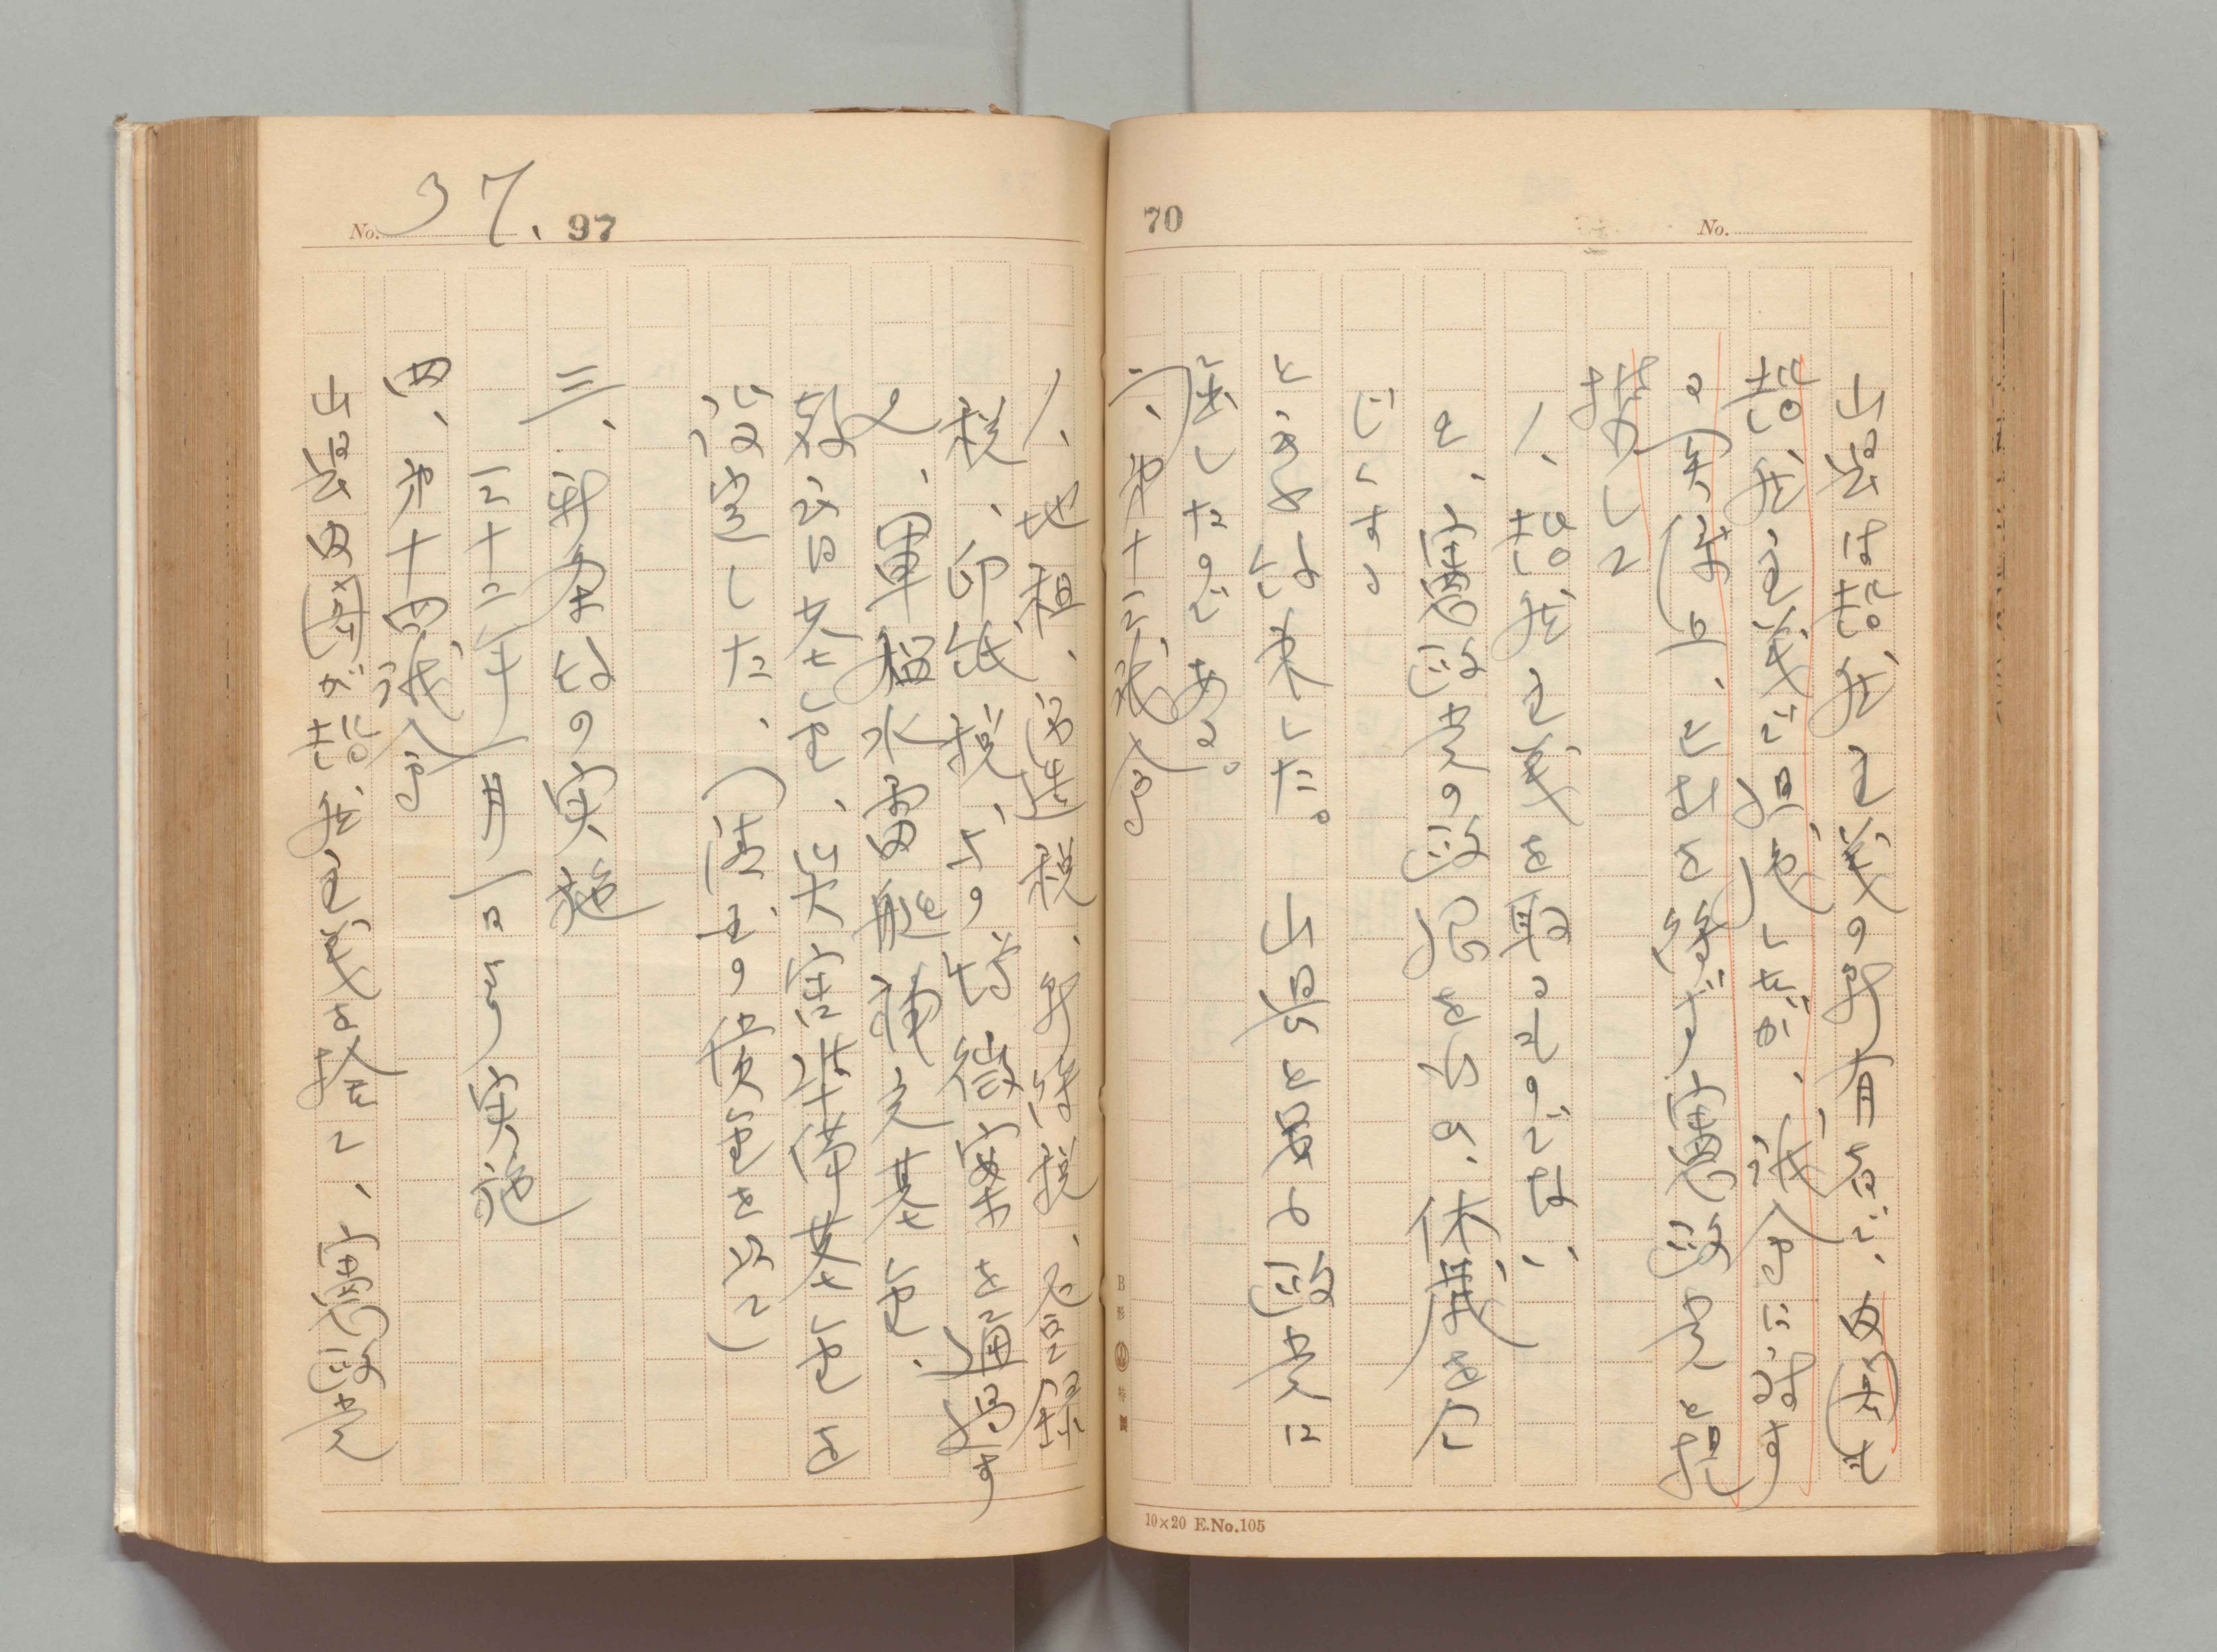 70
No.
山県は超然主義の所有者で、内閣も
超然主義で組急したが、議会に対す
る関係上、止むを得ず憲政党と提
携して
1、超然主義を取るものでない
2、憲政党の政綱を
じくする
と云う約束した。山県と雖も政党に
屈したのである。
二、第十三議会
10×20 E.No.105
No. 37. 97
1、地租、酒造税、所得税、登録
税、印紙税、等の増徴案を通過す
2、軍艦水雷艇補充基金、
教育基金、災害準備基金を
設定した、(清国の償金を以て)
三、新条約の実施
三十二年七月一日より実施
四、第十四議会
山県内閣が超然主義を捨て、憲政党